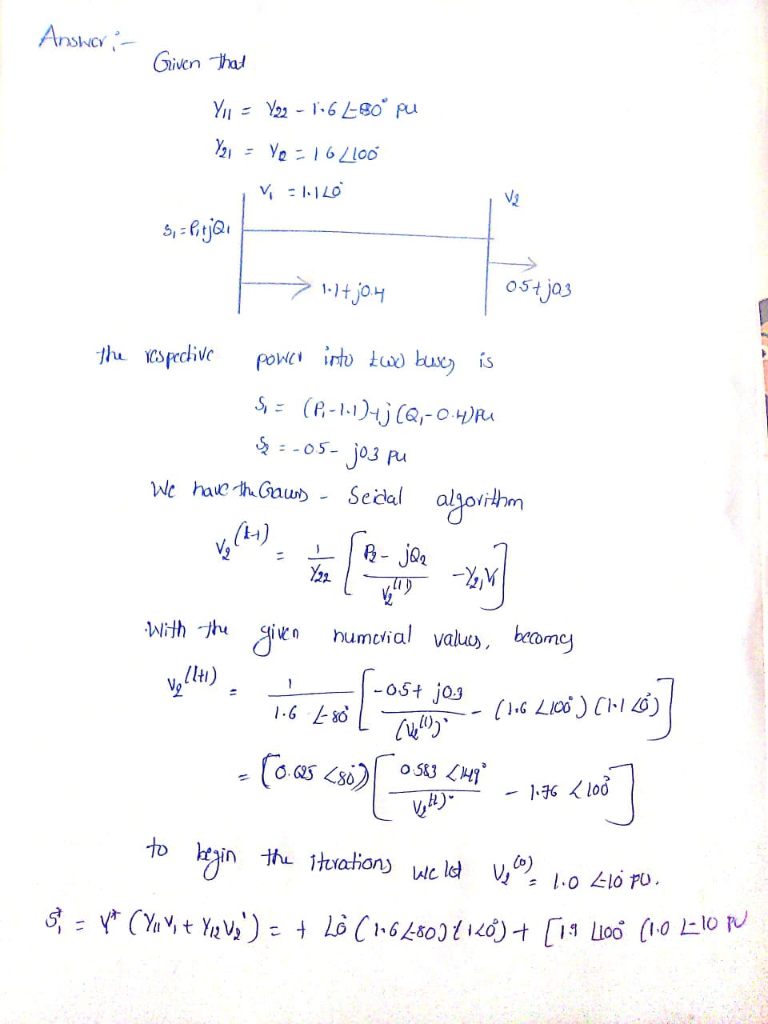 Answer :-
Given that
Y11 = Y22 - 1.6 ∠-80° pu
Y21 = Y2 = 16 ∠100
V1 = 1.1∠0°
V2
S1 = P1+jQ1
1.1+j0.4
05+j03
the respective power into two buses is
S1 = (P1-1.1)+j(Q1-0.4)Pu
S2 = -05- j03 pu
We have the Gauss - Seidal algorithm
V2^(k-1) = 1/Y22 [ P2 - jQ2 / V2^(1) - Y21V1 ]
With the given numerial values, becomes
V2^(l+1) = 1 / 1.6 ∠-80° [ -05+ j0.3 / (V2^(1))* - (1.6 ∠100°) (1.1 ∠0°) ]
= (0.625 ∠80°) [ 0583 ∠149° / V2^(t))* - 1.76 ∠100° ]
to begin the iterations we let V2^(0) = 1.0 ∠-10 PU.
S1* = V* (Y11V1 + Y12V2') = + ∠0° (1.6∠-80) (1∠0°) + [1.9 ∠100° (1.0 ∠-10 PU